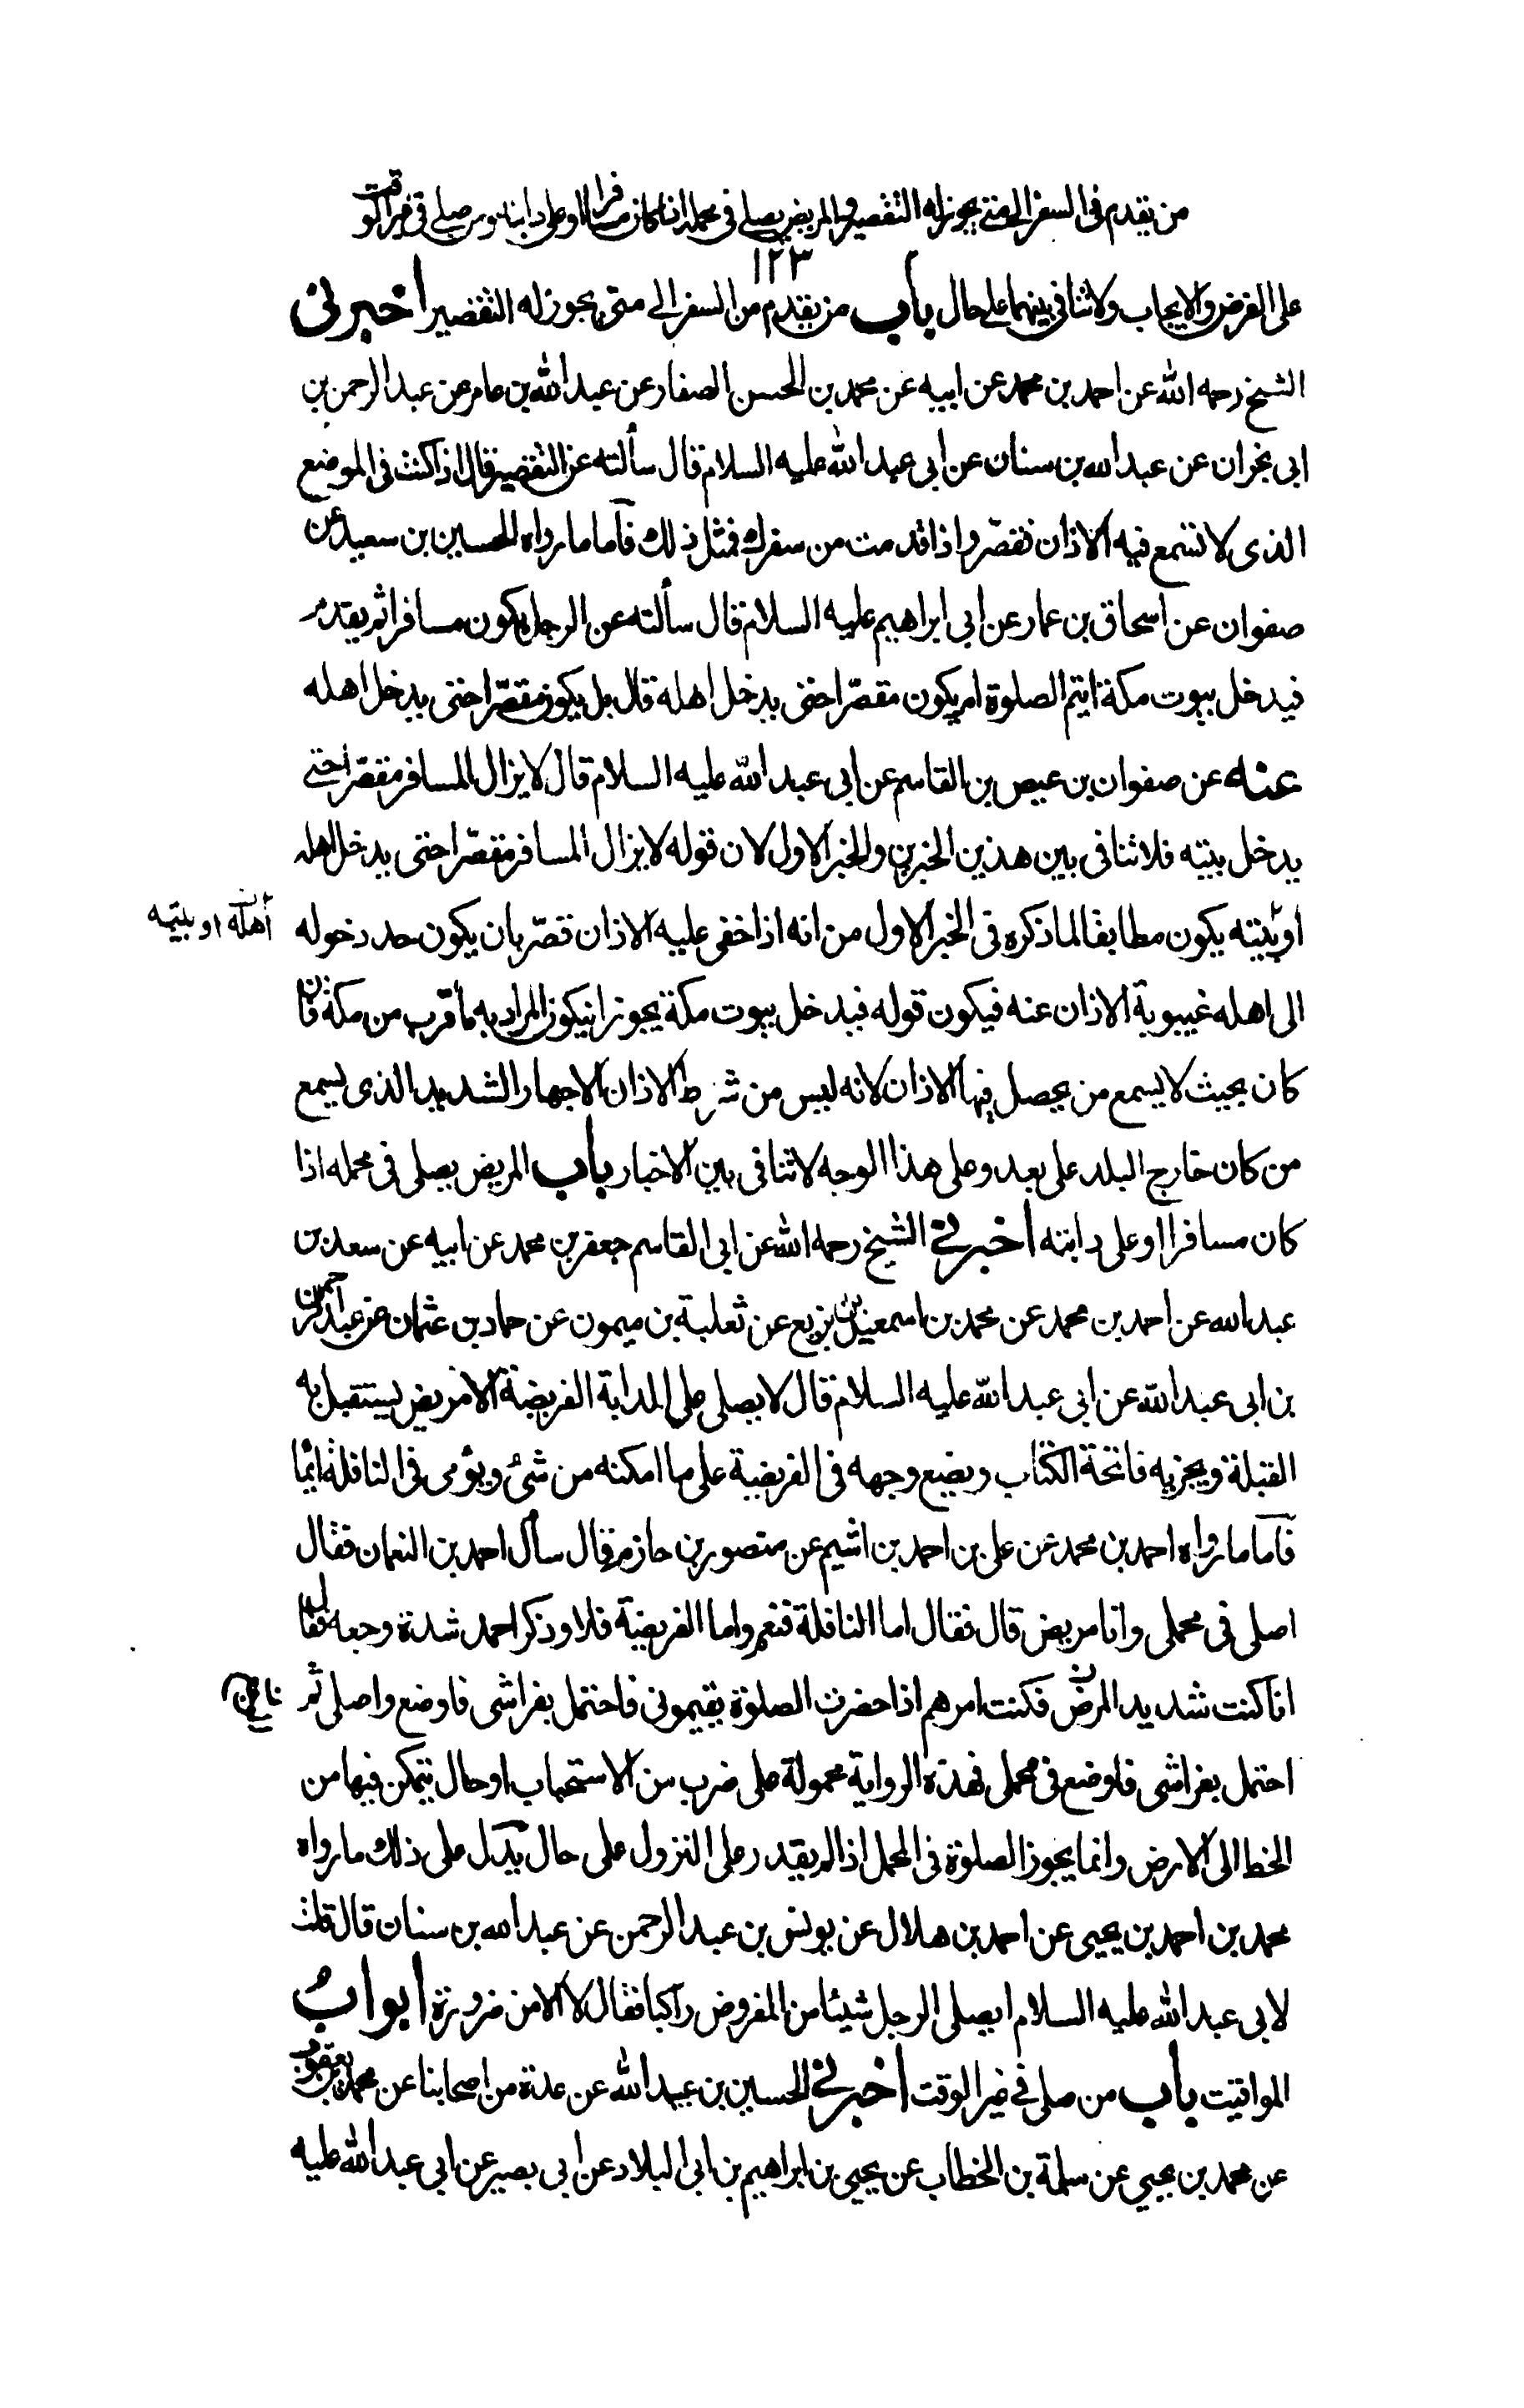 من يقدم فى السفر الى متى يجوز له التقصير والمريض يصلى فى محمله اذا كان مسافرا او على دابته ومن صلى فى غير الوقت
١٢٣
على الفرض والايجاب ولا تنافى بينهما على حال باب من يقدم من السفر الى متى يجوز له التقصير اخبرنى
الشيخ رحمه الله عن احمد بن محمد عن ابيه عن محمد بن الحسن الصفار عن عبد الله بن عامر عن عبد الرحمن بن
ابى نجران عن عبد الله بن سنان عن ابى عبد الله عليه السلام قال سألته عن التقصير قال اذا كنت فى الموضع
الذى لا تسمع فيه الاذان فقصّر واذا قدمت من سفرك فمثل ذلك فآما ما رواه الحسين بن سعيد عن
صفوان عن اسحاق بن عمار عن ابى ابراهيم عليه السلام قال سألته عن الرجل يكون مسافرا ثم يقدم
فيدخل بيوت مكة ايتم الصلوة ام يكون مقصّرا حتى يدخل اهله قال بل يكون مقصّرا حتى يدخل اهله
عنه عن صفوان بن عيص بن القاسم عن ابى عبد الله عليه السلام قال لا يزال المسافر مقصّرا حتى
يدخل بيته فلا تنافى بين هذين الخبرين والخبر الاول لان قوله لا يزال المسافر مقصّرا حتى يدخل اهله
او بيته يكون مطابقا لما ذكره فى الخبر الاول من انه اذا خفى عليه الاذان قصّر بان يكون حد دخوله
أهله او بيته
الى اهله غيبوبة الاذان عنه فيكون قوله فيدخل بيوت مكة يجوز ان يكون المراد به ما قرب من مكة فان
كان بحيث لا يسمع من يحصل فيها الاذان لانه ليس من شرط الاذان الاجهار الشديد الذى يسمع
من كان خارج البلد على بعد وعلى هذا الوجه لا تنافى بين الاخبار باب المريض يصلى فى محمله اذا
كان مسافرا او على دابته اخبرنى الشيخ رحمه الله عن ابى القاسم جعفر بن محمد عن ابيه عن سعد بن
عبد الله عن احمد بن محمد عن محمد بن اسمعيل بن بزيع عن ثعلبة بن ميمون عن حماد بن عثمان عن عبد الرحمن
بن ابى عبد الله عن ابى عبد الله عليه السلام قال لا يصلى على الدابة الفريضة الا مريض يستقبل به
القبلة ويجزيه فاتحة الكتاب ويضع وجهه فى الفريضة على ما امكنه من شئ ويؤمى فى النافلة ايمّا
فآما ما رواه احمد بن محمد عن على بن احمد بن اشيم عن منصور بن حازم قال سأل احمد بن النعمان فقال
اصلى فى محملى وانا مريض قال فقال اما النافلة فنعم واما الفريضة فلا وذكر احمد شدة وجعه فقال
انا كنت شديد المرض فكنت امرهم اذا حضرت الصلوة يقيمونى فاحتمل بفراشى فاوضع واصلى ثم
احتمل بفراشى فاوضع فى محملى فهذه الرواية محمولة على ضرب من الاستحباب او حال يتمكن فيها من
الخط الى الارض وانما يجوز الصلوة فى المحمل اذا لم يقدر على النزول على حال يدل على ذلك ما رواه
محمد بن احمد بن يحيى عن احمد بن هلال عن يونس بن عبد الرحمن عن عبد الله بن سنان قال قلت
لابى عبد الله عليه السلام ايصلى الرجل شيئا من المفروض راكبا فقال لا الا من ضرورة ابوابُ
المواقيت باب من صلى فى غير الوقت اخبرنى الحسين بن عبيد الله عن عدة من اصحابنا عن محمد بن يعقوب
عن محمد بن يحيى عن سلمة بن الخطاب عن يحيى بن ابراهيم بن ابى البلاد عن ابى بصير عن ابى عبد الله عليه